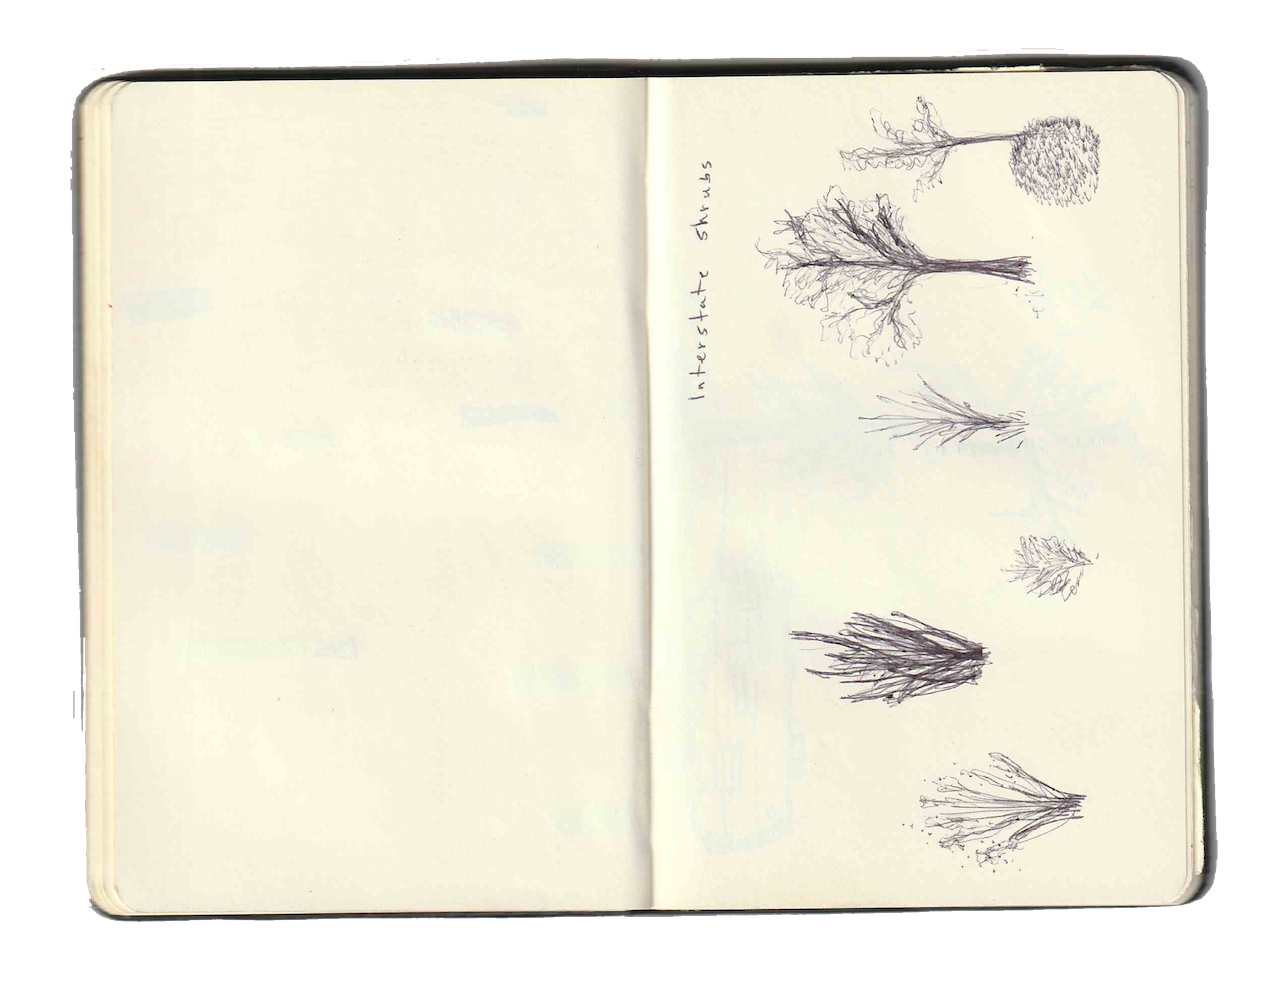 Interstate shrubs